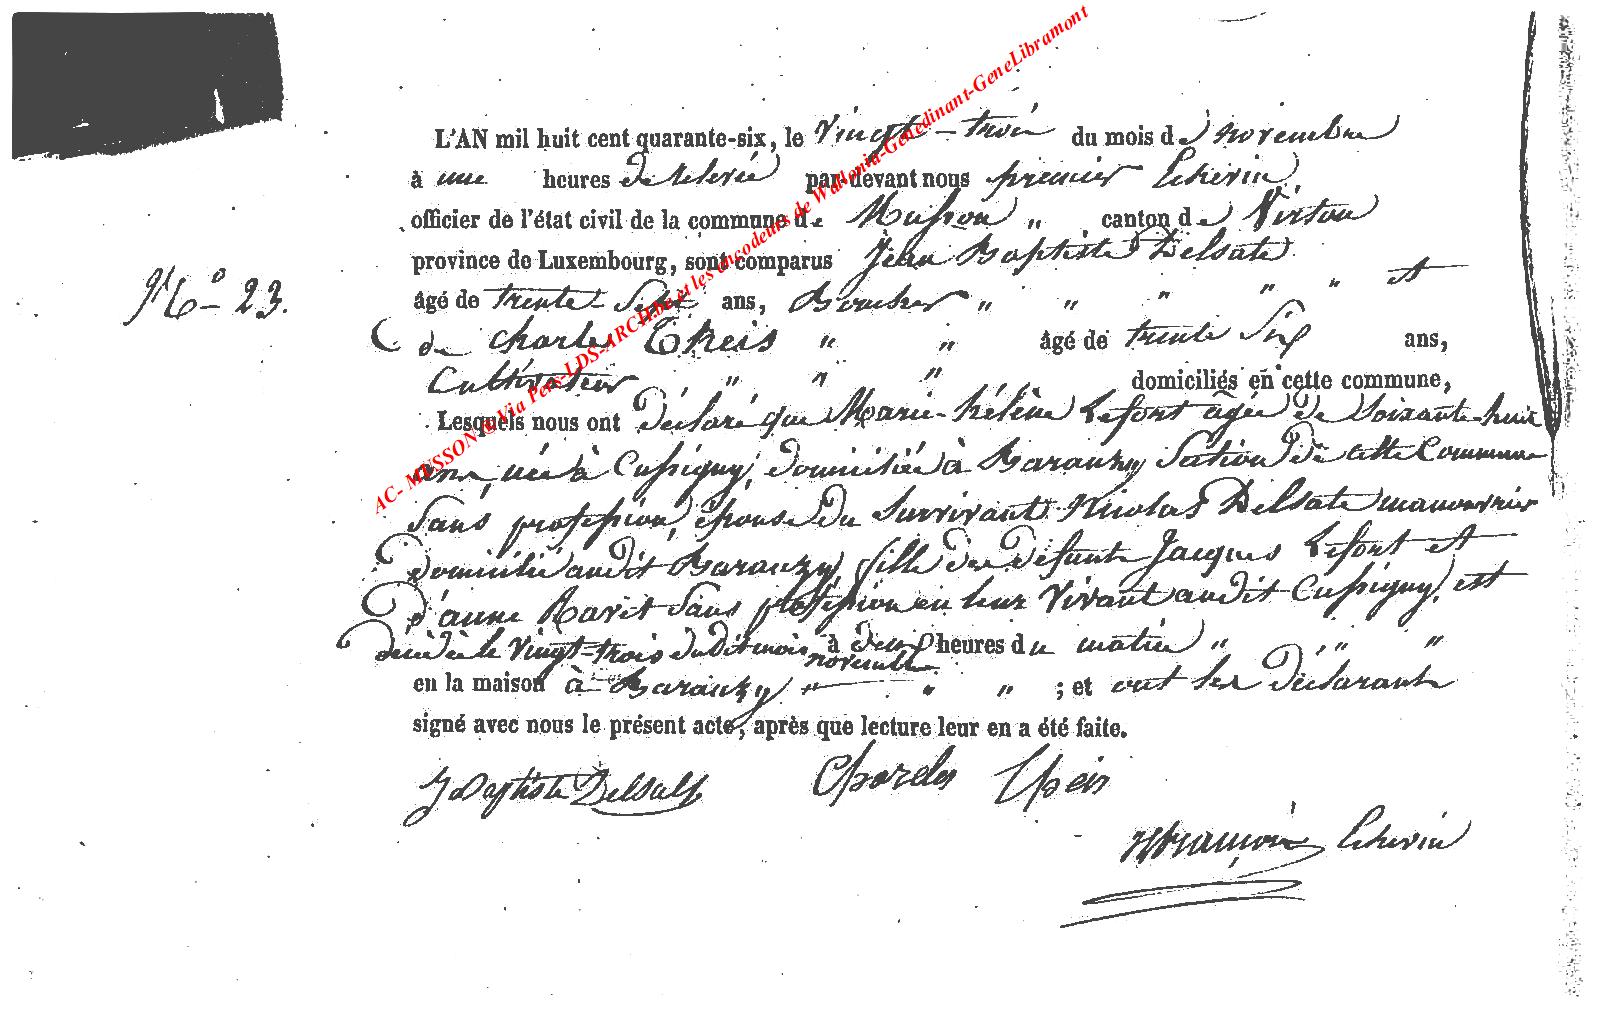 L'AN mil huit cent quarante-six, le Vingt-trois du mois de novembre
à une heures de relevée par-devant nous premier Echevin
officier de l'état civil de la commune de Musson " canton de Virton
province de Luxembourg, sont comparus Jean Baptiste Delsate
N° 23.
âgé de trente-Sept ans, Boucher " " " " " et
de Charles Theis " " âgé de trente Six ans,
Cultivateur " " " domiciliés en cette commune,
Lesquels nous ont déclaré que Marie-hélène Lefort âgée de Soixante-huit
ans, née à Cussigny, domiciliée à Baranzy Section de cette Commune
Sans profession, épouse du Survivant Nicolas Delsate manouvrier
domicilié audit Baranzy, fille des défunts Jacques Lefort et
d'anne Ravet Sans profession en leur Vivant audit Cussigny, est
décédée le Vingt-trois dudit mois novembre à deux heures du matin " " "
en la maison à Baranzy " " " ; et ont les déclarants
signé avec nous le présent acte, après que lecture leur en a été faite.
J Baptiste Delsate Charles Theis
Echevin
AC- MUSSON © Via Pers-LDS-ARCH.be et les encodeurs de Wallonia-Genedinant-GeneLibramont